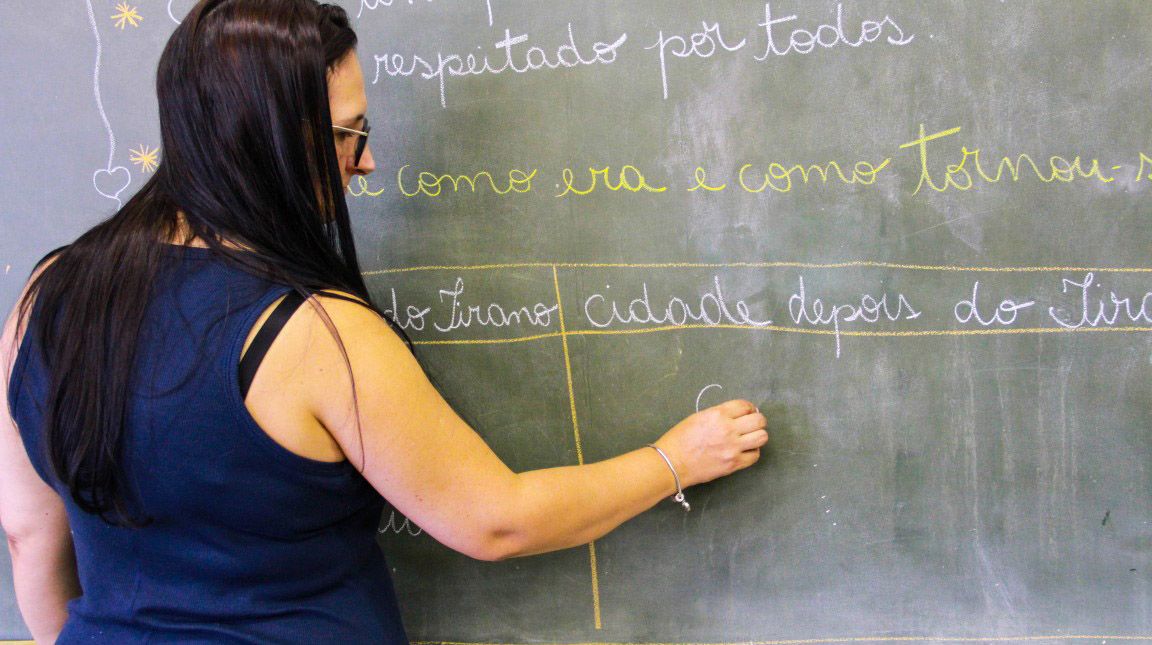 respeitado por todos.
e como era e como tornou-s
do Tirano cidade depois do Tira